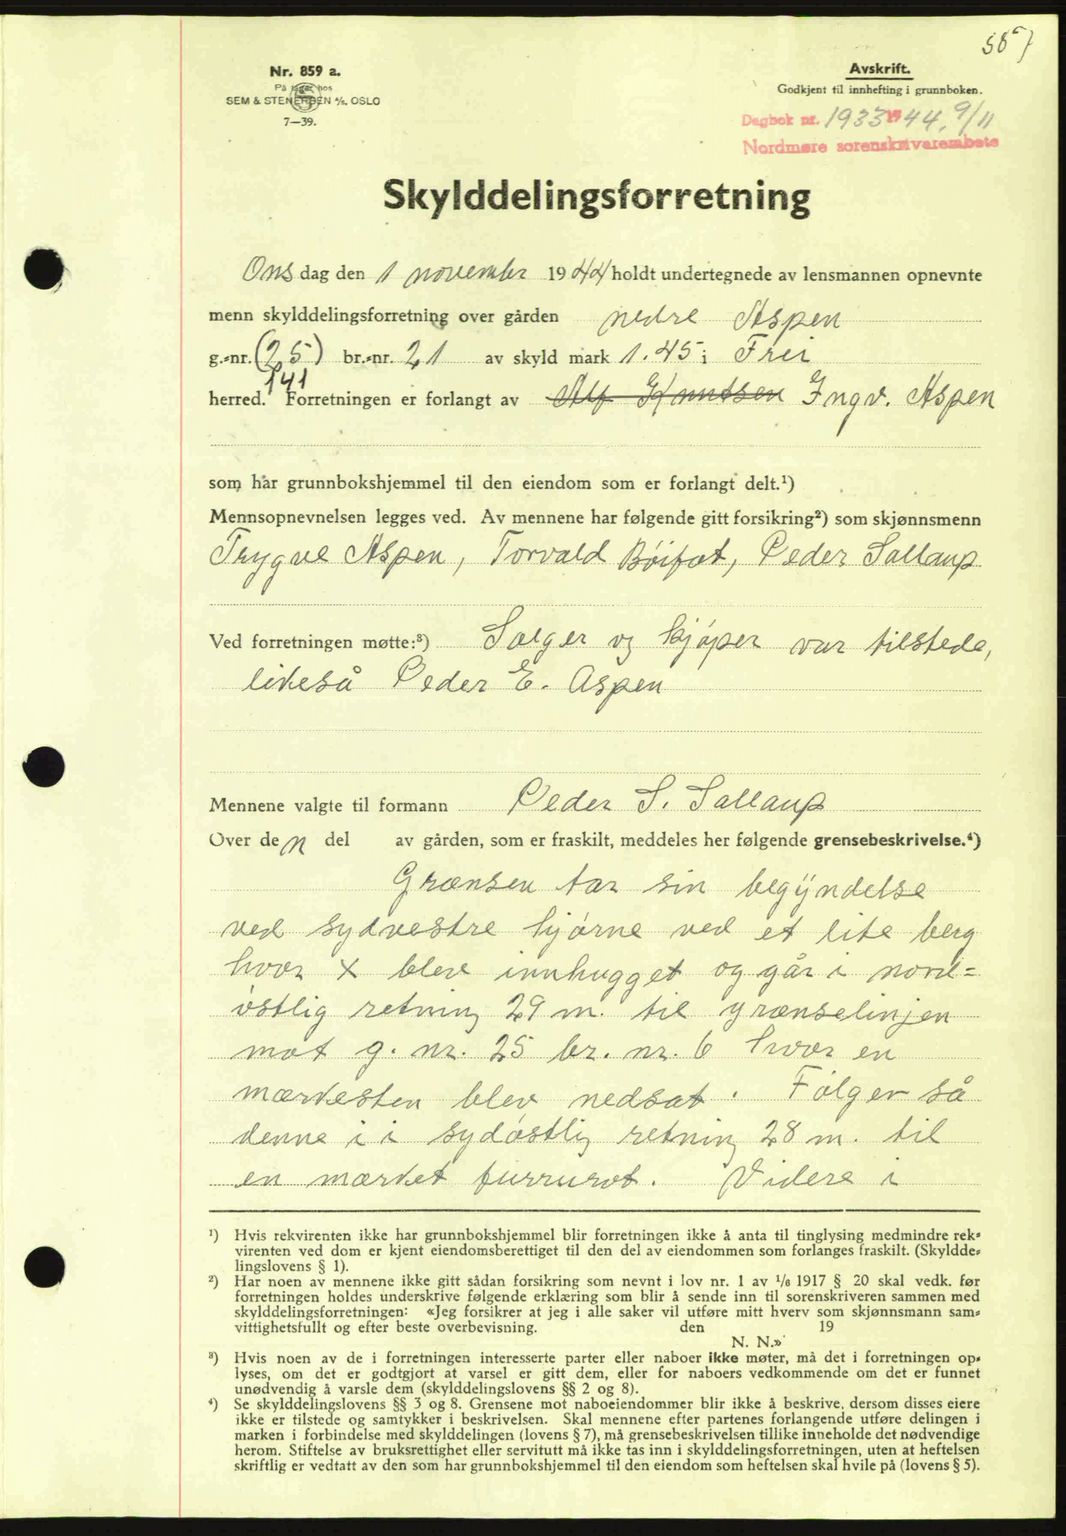 587
Nr. 859 a.
På lager hos
SEM & STENERSEN A/S. OSLO
7—39.
Avskrift.
Godkjent til innhefting i grunnboken.
Dagbok nr. 1933 1944, 9/11
Nordmøre sorenskrivarembete
Skylddelingsforretning
Ons dag den 1 november 1944 holdt undertegnede av lensmannen opnevnte
menn skylddelingsforretning over gården nedre Aspen
g.-nr. (25) br.-nr. 21 av skyld mark 1.45 i Frei
141
herred. Forretningen er forlangt av Alf Knutsen Ingv. Aspen
som har grunnbokshjemmel til den eiendom som er forlangt delt.¹)
Mennsopnevnelsen legges ved. Av mennene har følgende gitt forsikring²) som skjønnsmenn
Trygve Aspen, Torvald Böifot, Peder Sallaup
Ved forretningen møtte:³) Sælger og kjøper var tilstede,
likeså Peder E. Aspen
Mennene valgte til formann Peder S. Sallaup
Over den del av gården, som er fraskilt, meddeles her følgende grensebeskrivelse.⁴)
Grænsen tar sin begÿndelse
ved sydvestre hjørne ved et lite berg
hvor X blev innhugget og går i nord=
østlig retning 29 m. til grænselinjen
mot g. nr. 25 br. nr. 6 hvor en
mærkesten blev nedsat. Følger så
denne i i sydøstlig retning 28 m. til
en mærket fururot. Videre i
¹) Hvis rekvirenten ikke har grunnbokshjemmel blir forretningen ikke å anta til tinglysing medmindre rek-
virenten ved dom er kjent eiendomsberettiget til den del av eiendommen som forlanges fraskilt. (Skyldde-
lingslovens § 1).
²) Har noen av mennene ikke gitt sådan forsikring som nevnt i lov nr. 1 av 1/6 1917 § 20 skal vedk. før
forretningen holdes underskrive følgende erklæring som blir å sende inn til sorenskriveren sammen med
skylddelingsforretningen: «Jeg forsikrer at jeg i alle saker vil utføre mitt hverv som skjønnsmann sam-
vittighetsfullt og efter beste overbevisning. den 19
N. N.»
³) Hvis noen av de i forretningen interesserte parter eller naboer ikke møter, må det i forretningen op-
lyses, om det er godtgjort at varsel er gitt dem, eller for naboers vedkommende om det er funnet
unødvendig å varsle dem (skylddelingslovens §§ 2 og 8).
⁴) Se skylddelingslovens §§ 3 og 8. Grensene mot naboeiendommer blir ikke å beskrive, dersom disses eiere
ikke er tilstede og samtykker i beskrivelsen. Skal mennene efter partenes forlangende utføre delingen i
marken i forbindelse med skylddelingen (lovens § 7), må grensebeskrivelsen tillike inneholde det nødvendige
herom. Stiftelse av bruksrettighet eller servitutt må ikke tas inn i skylddelingsforretningen, uten at heftelsen
skriftlig er vedtatt av den som har grunnbokshjemmel til den eiendom som heftelsen skal hvile på (lovens § 5).